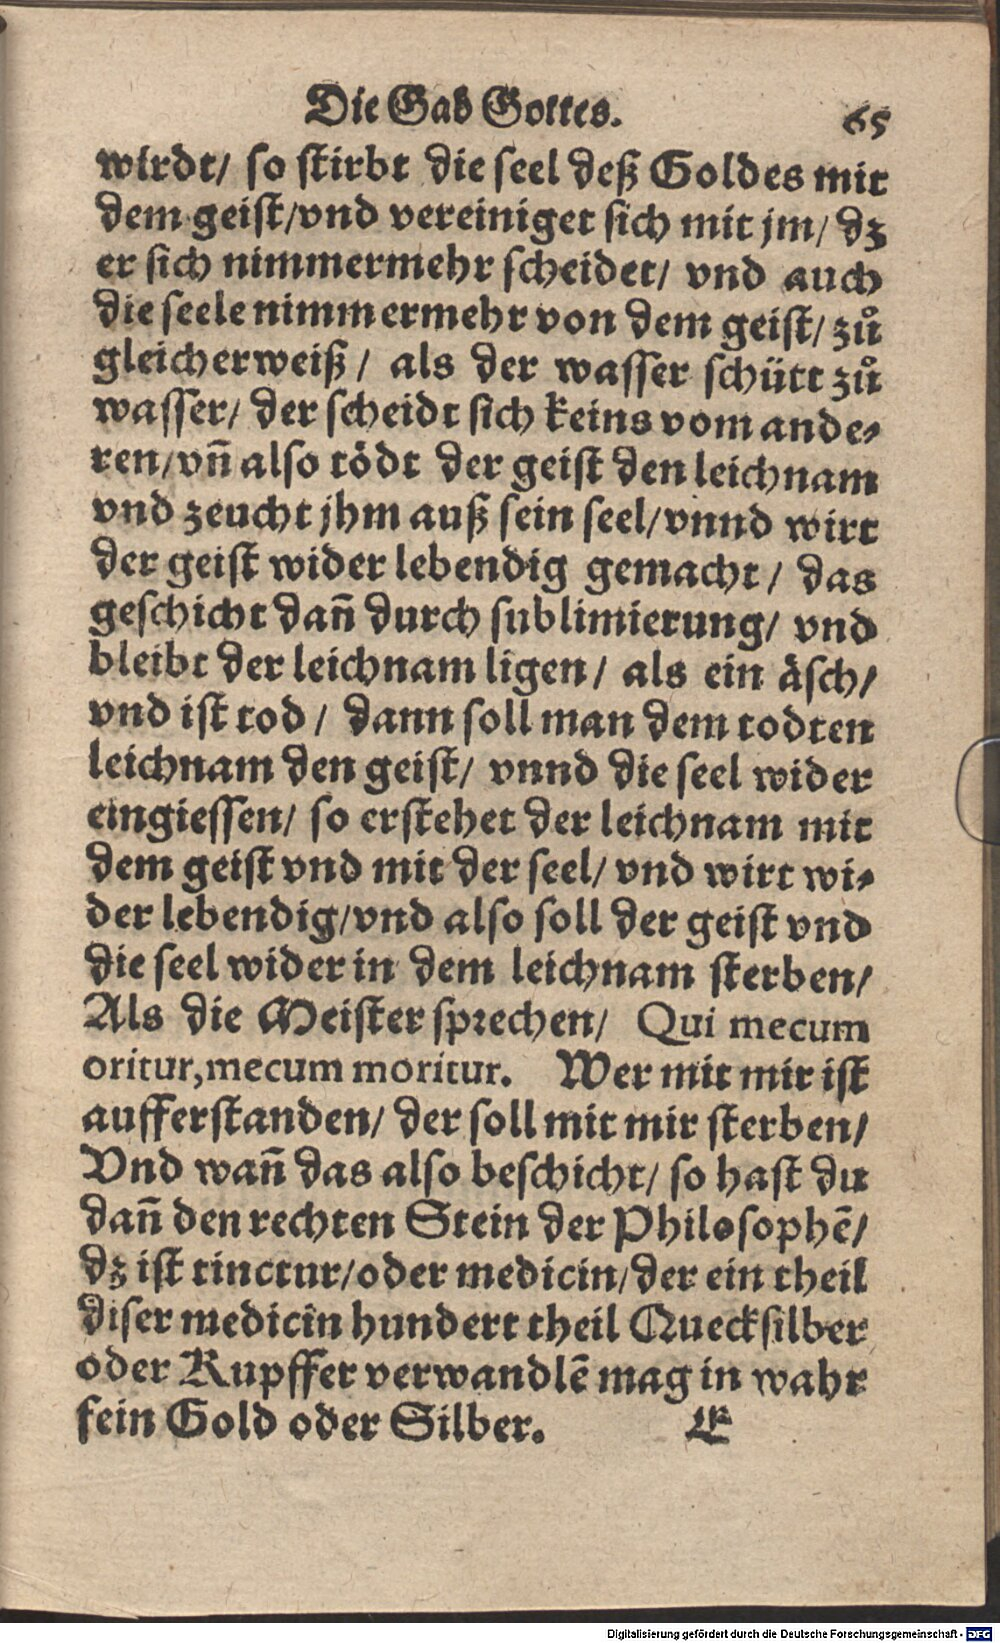 Die Gab Gottes. 65
wirdt/ so stirbt die seel deß Goldes mit
dem geist/vnd vereiniget sich mit jm/ dz
er sich nimmermehr scheidet/ vnd auch
die seele nimmermehr von dem geist/ zů
gleicherweiß/ als der wasser schütt zů
wasser/ der scheidt sich keins vom ande-
ren/vñ also tödt der geist den leichnam
vnd zeucht jhm auß sein seel/vnnd wirt
der geist wider lebendig gemacht/ das
geschicht dañ durch sublimierung/ vnd
bleibt der leichnam ligen/ als ein äsch/
vnd ist tod/ dann soll man dem todten
leichnam den geist/ vnnd die seel wider
eingiessen/ so erstehet der leichnam mit
dem geist vnd mit der seel/ vnd wirt wi-
der lebendig/vnd also soll der geist vnd
die seel wider in dem leichnam sterben/
Als die Meister sprechen/ Qui mecum
oritur,mecum moritur. Wer mit mir ist
aufferstanden/ der soll mit mir sterben/
Vnd wañ das also beschicht/ so hast du
dañ den rechten Stein der Philosophẽ/
dz ist tinctur/oder medicin/der ein theil
diser medicin hundert theil Quecksilber
oder Kupffer verwandlẽ mag in wahr
fein Gold oder Silber. E
Digitalisierung gefördert durch die Deutsche Forschungsgemeinschaft - DFG